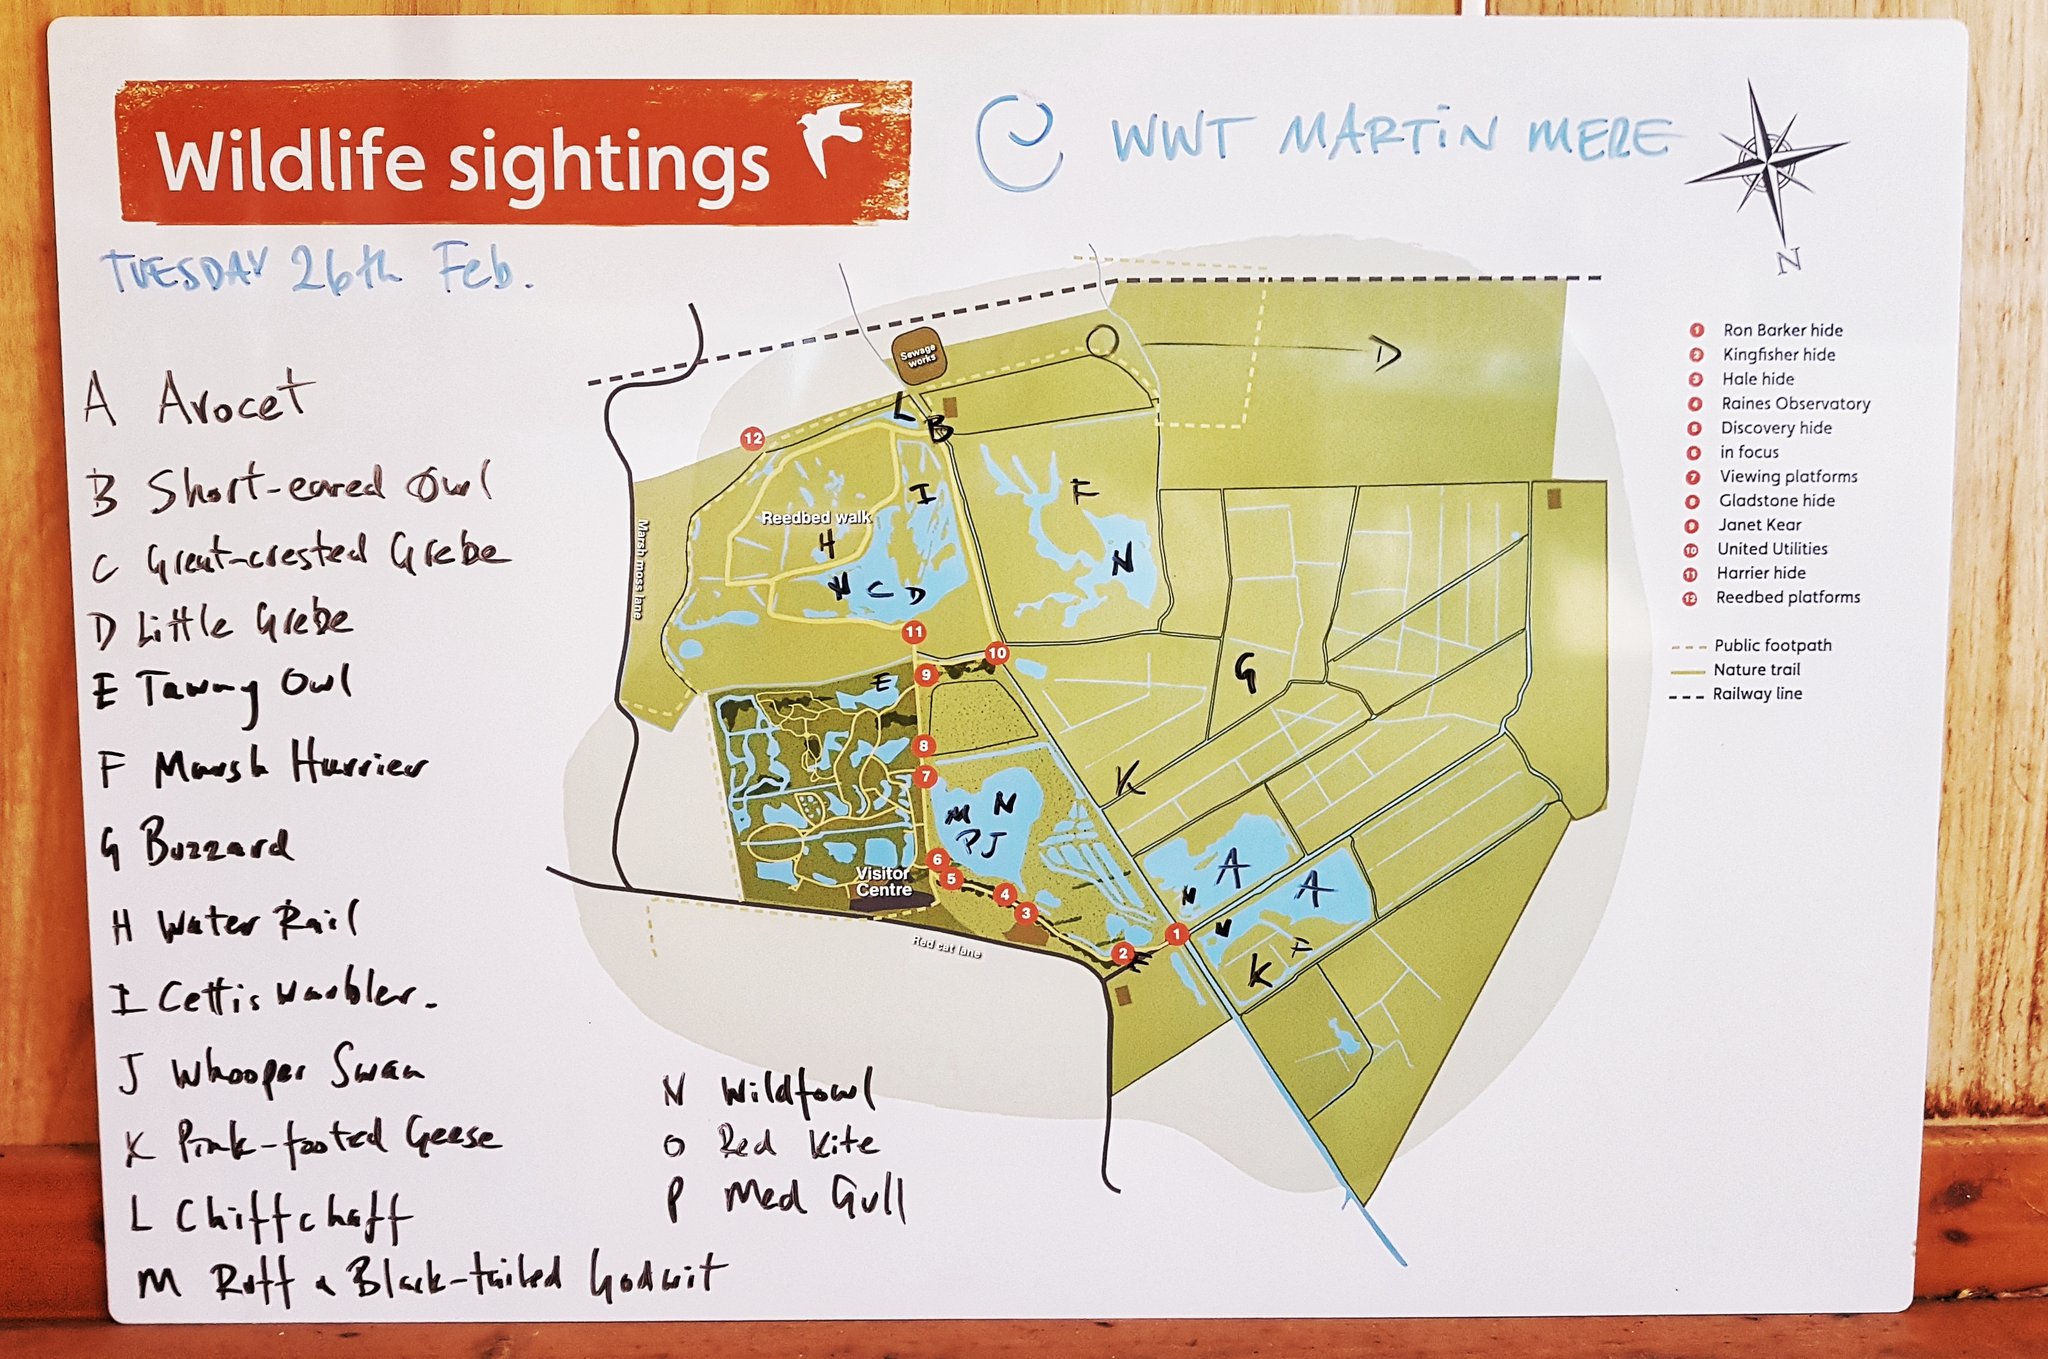 Wildlife sightings
@ WWT MARTIN MERE
N
TUESDAY 26th Feb.
A Avocet
B Short-eared Owl
C Great-crested Grebe
D Little Grebe
E Tawny Owl
F Marsh Harrier
G Buzzard
H Water Rail
I Cettis Warbler.
J Whooper Swan
K Pink-footed Geese
L Chiffchaff
M Ruff & Black-tailed Godwit
N Wildfowl
O Red Kite
P Med Gull
Sewage
works
O
L
B
12
F
I
Reedbed walk
H
N
N C D
Marsh moss lane
11
10
9
E
G
8
7
K
M N
P J
6
5
Visitor
Centre
4
3
A
A
N
N
1
2
F
K
Red cat lane
1 Ron Barker hide
2 Kingfisher hide
3 Hale hide
4 Raines Observatory
5 Discovery hide
6 in focus
7 Viewing platforms
8 Gladstone hide
9 Janet Kear
10 United Utilities
11 Harrier hide
12 Reedbed platforms
Public footpath
Nature trail
Railway line